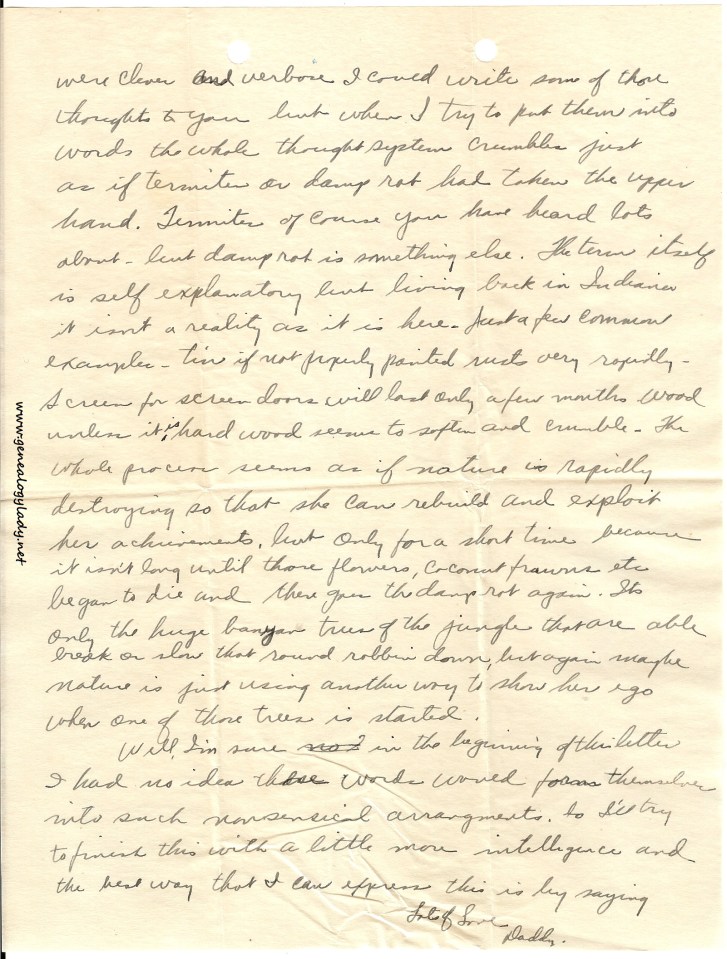 were clever and verbose I could write some of those
thoughts to you but when I try to put them into
words the whole thought system crumbles just
as if termites or damp rot had taken the upper
hand. Termites of course you have heard lots
about - but damp rot is something else. The term itself
is self explanatory but living back in Indiana
it isn't a reality as it is here - Just a few common
examples - tin if not properly painted rusts very rapidly -
Screen for screen doors will last only a few months wood
unless it is hard wood seems to soften and crumble - The
whole process seems as if nature is rapidly
destroying so that she can rebuild and exploit
her achievements, but only for a short time because
it isn't long until those flowers, coconut frawns etc
began to die and there goes the damp rot again. Its
only the huge banyan trees of the jungle that are able
break or slow that round robbin down, but again maybe
nature is just using another way to show her ego
when one of those trees is started.
Well, I'm sure not in the beginning of this letter
I had no idea these words would form themselves
into such nonsensical arrangments. So I'll try
to finish this with a little more intelligence and
the best way that I can express this is by saying
Lots of Love
Daddy.
www.genealogylady.net